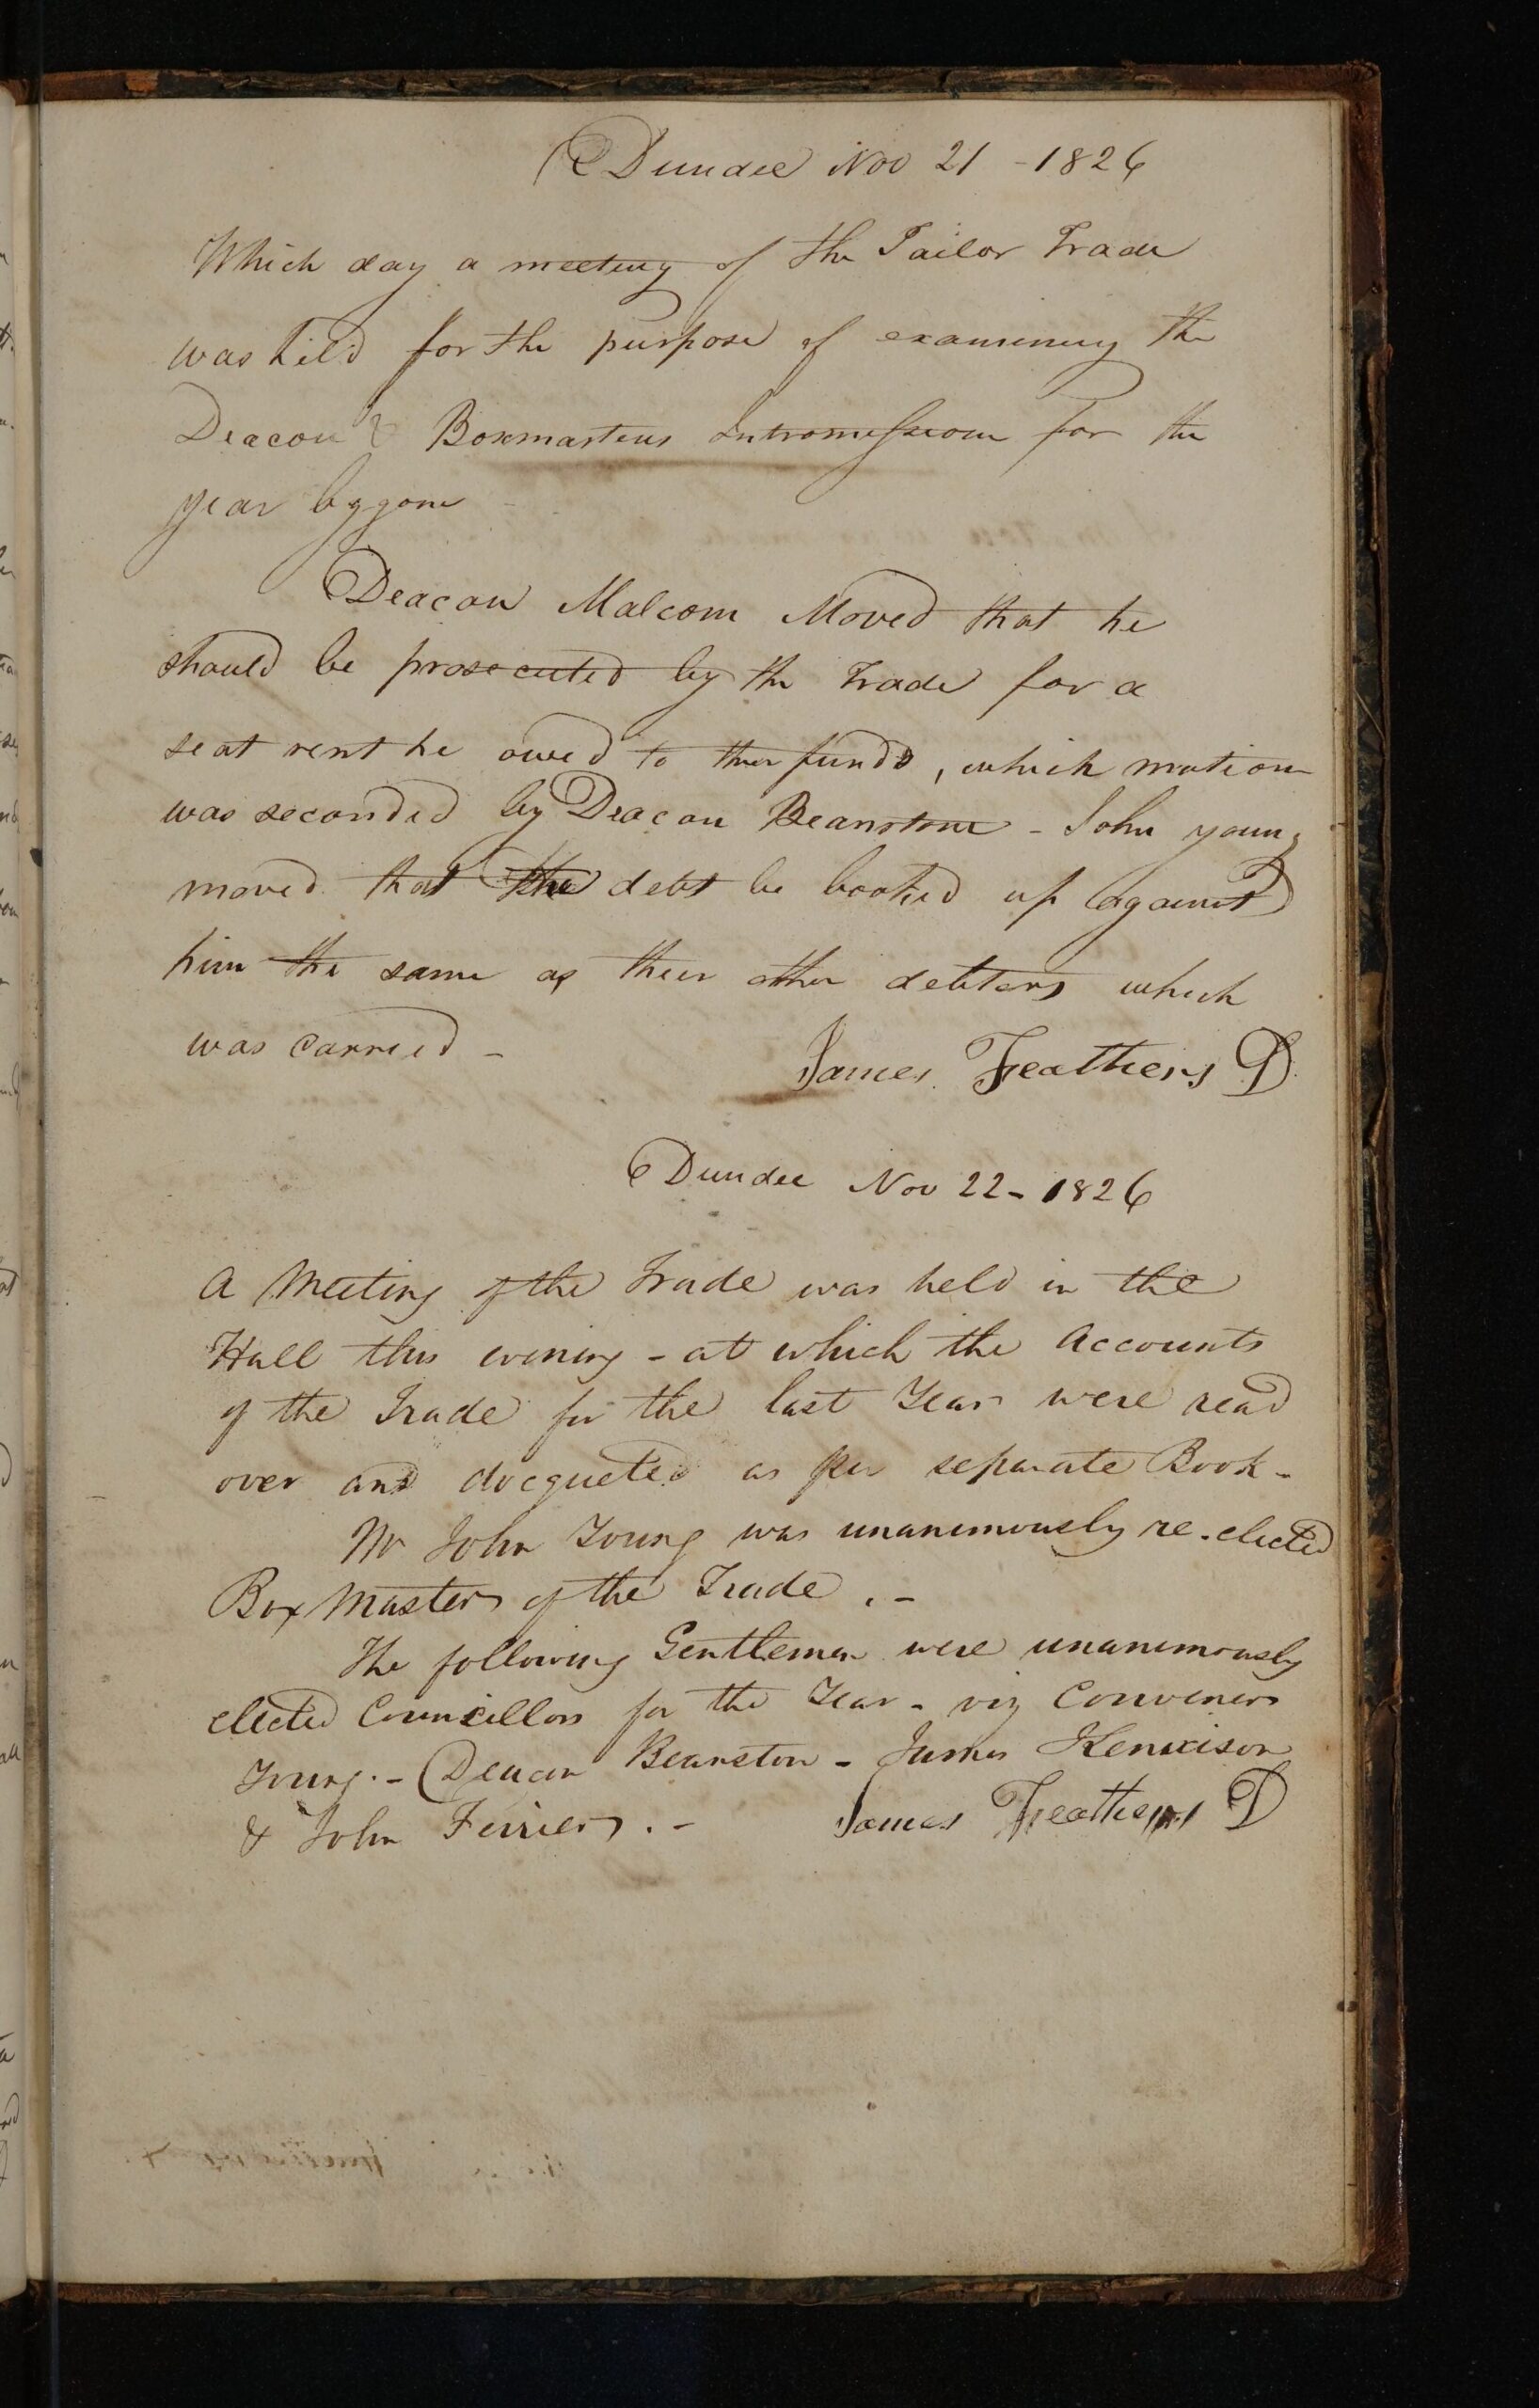 Dundee Nov 21 - 1826
Which day a meeting of the Tailor Trade
was held for the purpose of examining the
Deacon & Boxmasters Intromissions for the
year bygone -
Deacon Malcom Moved that he
should be prosecuted by the Trade for a
seat rent he owed to their funds, which motion
was seconded by Deacon Beanstone - John young
moved that the debt be booked up against
him the same as their other debters which
was carried -
James Feathers D.
Dundee Nov 22 - 1826
A Meeting of the Trade was held in the
Hall this evening - at which the Accounts
of the Trade for the last Year were read
over and docqueted as per separate Book -
Mr John Young was unanimously re-elected
Box Master of the Trade . -
The following Gentlemen were unanimously
elected Councillors for the Year - viz Convener
Young. - Deacon Beanston - James Kennison
& John Ferrier . - James Feathers D